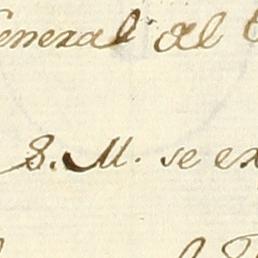 General al
S. M. se ex